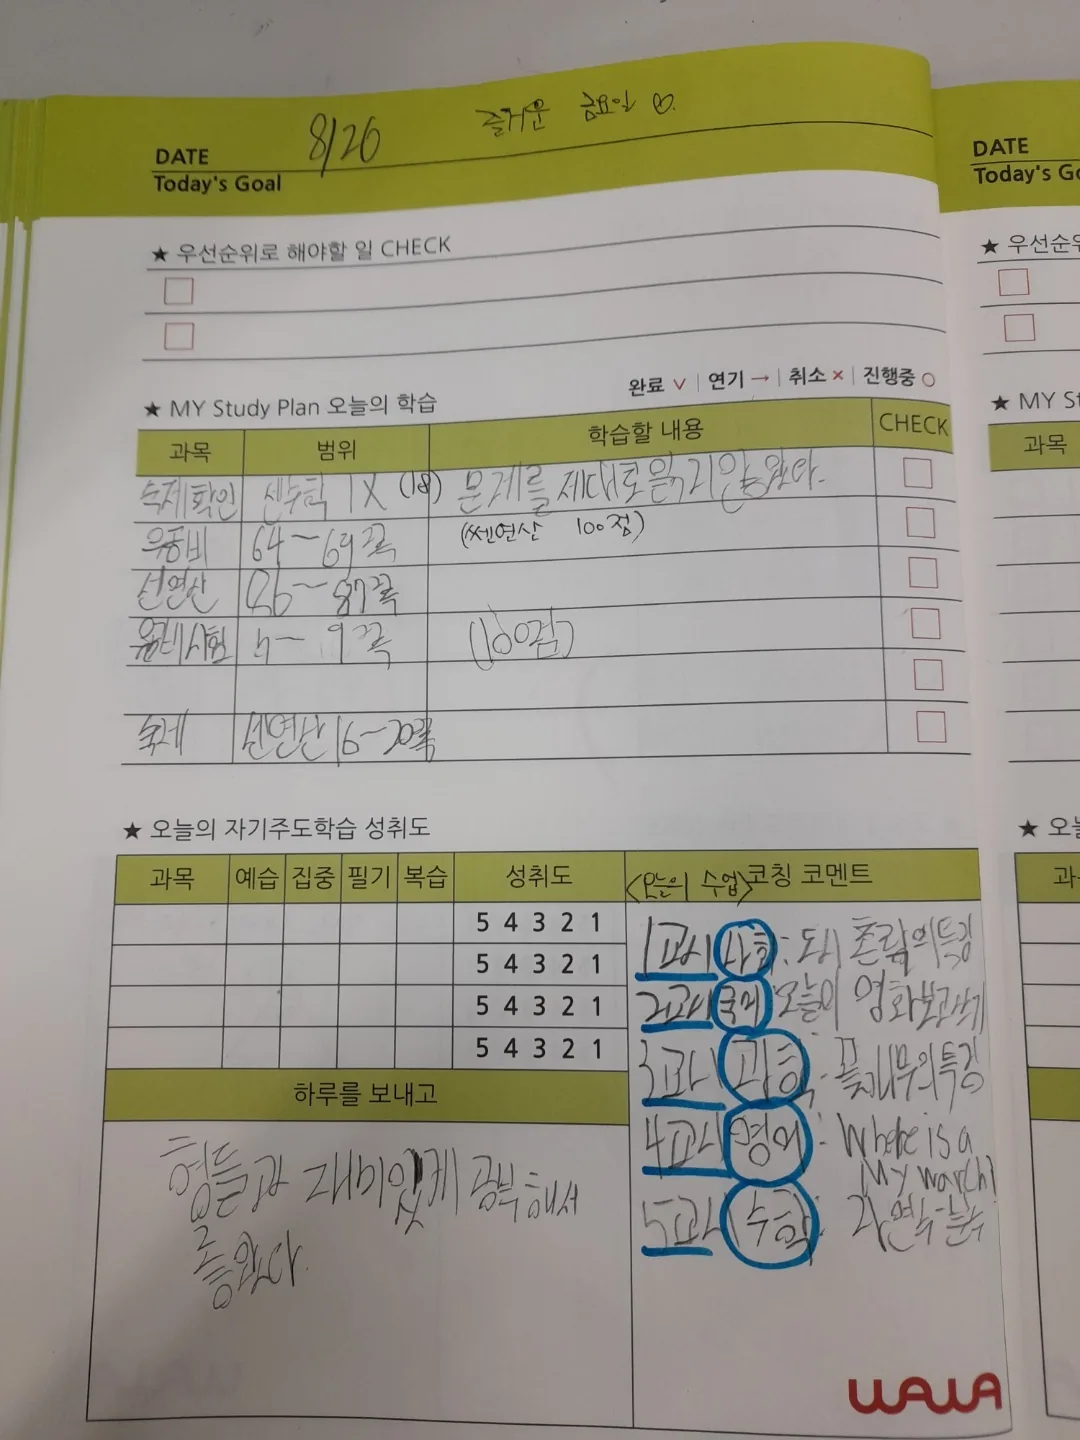 8/26 즐거운 금요일
DATE
Today's Goal
★ 우선순위로 해야할 일 CHECK
완료 ∨ | 연기 → | 취소 × | 진행중 ○
★ MY Study Plan 오늘의 학습
과목 범위 학습할 내용 CHECK
숙제확인 쎈수학 1X (18) 문제를 제대로 읽지 않았다.
64~69쪽 (쎈연산 100점)
쎈연산 86~87쪽
4~ 6쪽 (100점)
숙제 쎈연산 19~20쪽
★ 오늘의 자기주도학습 성취도
과목 예습 집중 필기 복습 성취도 <오늘의 수업> 코칭 코멘트
5 4 3 2 1
5 4 3 2 1
5 4 3 2 1
5 4 3 2 1
1교시 사회: 도시 촌락의 특징
2교시 국어 영화보고
3교시 과학: 특징
4교시 영어: Where is a
My
5교시 수학:
하루를 보내고
형들과 재미있게 공부해서
좋았다
WAWA
DATE
Today's Go
★ 우선순위
★ MY St
과목
★ 오늘
과